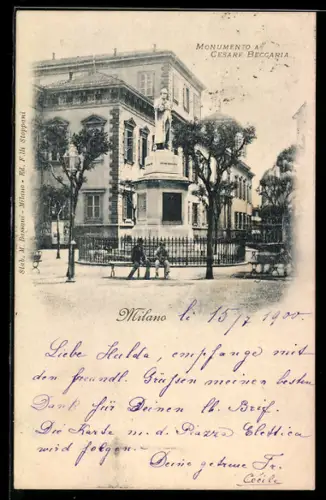 MONUMENTO A
CESARE BECCARIA
Stab. M. Bassani - Milano - Ed. F.lli Stoppani
Milano li 15/7 1900.
Liebe Hulda, empfange mit
den freundl. Grüßen meinen besten
Dank für Deinen lb. Brief.
Die Karte m. d. Piazza Elettica
wird folgen.
Deine getreue Fr.
Cécile